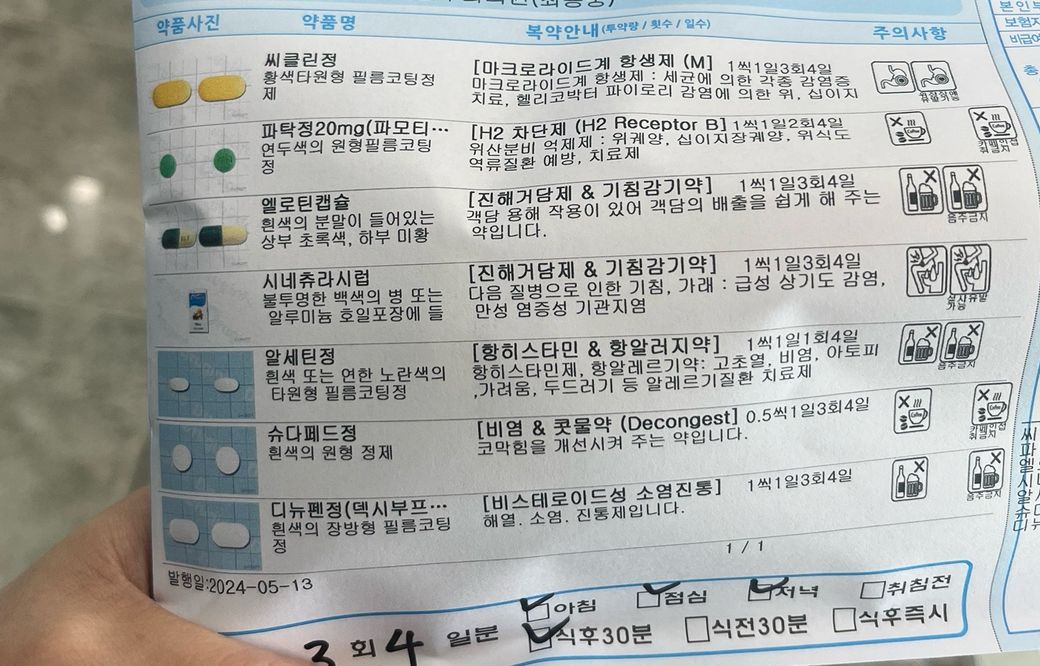 약품사진 약품명 복약안내(투약량 / 횟수 / 일수) 주의사항
씨클린정
황색타원형 필름코팅정
제
[마크로라이드계 항생제 (M] 1씩1일3회4일
마크로라이드계 항생제 : 세균에 의한 각종 감염증
치료, 헬리코박터 파이로리 감염에 의한 위, 십이지
파탁정20mg(파모티…
연두색의 원형필름코팅
정
[H2 차단제 (H2 Receptor B] 1씩1일2회4일
위산분비 억제제 : 위궤양, 십이지장궤양, 위식도
역류질환 예방, 치료제
엘로틴캡슐
흰색의 분말이 들어있는
상부 초록색, 하부 미황
[진해거담제 & 기침감기약] 1씩1일3회4일
객담 용해 작용이 있어 객담의 배출을 쉽게 해 주는
약입니다.
음주금지
시네츄라시럽
불투명한 백색의 병 또는
알루미늄 호일포장에 들
[진해거담제 & 기침감기약] 1씩1일3회4일
다음 질병으로 인한 기침, 가래 : 급성 상기도 감염,
만성 염증성 기관지염
설사유발
가능
알세틴정
흰색 또는 연한 노란색의
타원형 필름코팅정
[항히스타민 & 항알러지약] 1씩1일1회4일
항히스타민제, 항알레르기약: 고초열, 비염, 아토피
,가려움, 두드러기 등 알레르기질환 치료제
음주금지
슈다페드정
흰색의 원형 정제
[비염 & 콧물약 (Decongest] 0.5씩1일3회4일
코막힘을 개선시켜 주는 약입니다.
디뉴펜정(덱시부프…
흰색의 장방형 필름코팅
정
[비스테로이드성 소염진통] 1씩1일3회4일
해열. 소염. 진통제입니다.
음주금지
1 / 1
발행일:2024-05-13
3 회 4 일분
아침 점심 저녁 취침전
식후30분 식전30분 식후즉시
본인부
보험자
비급여
총
씨
파
엘
시
알
슈
디뉴